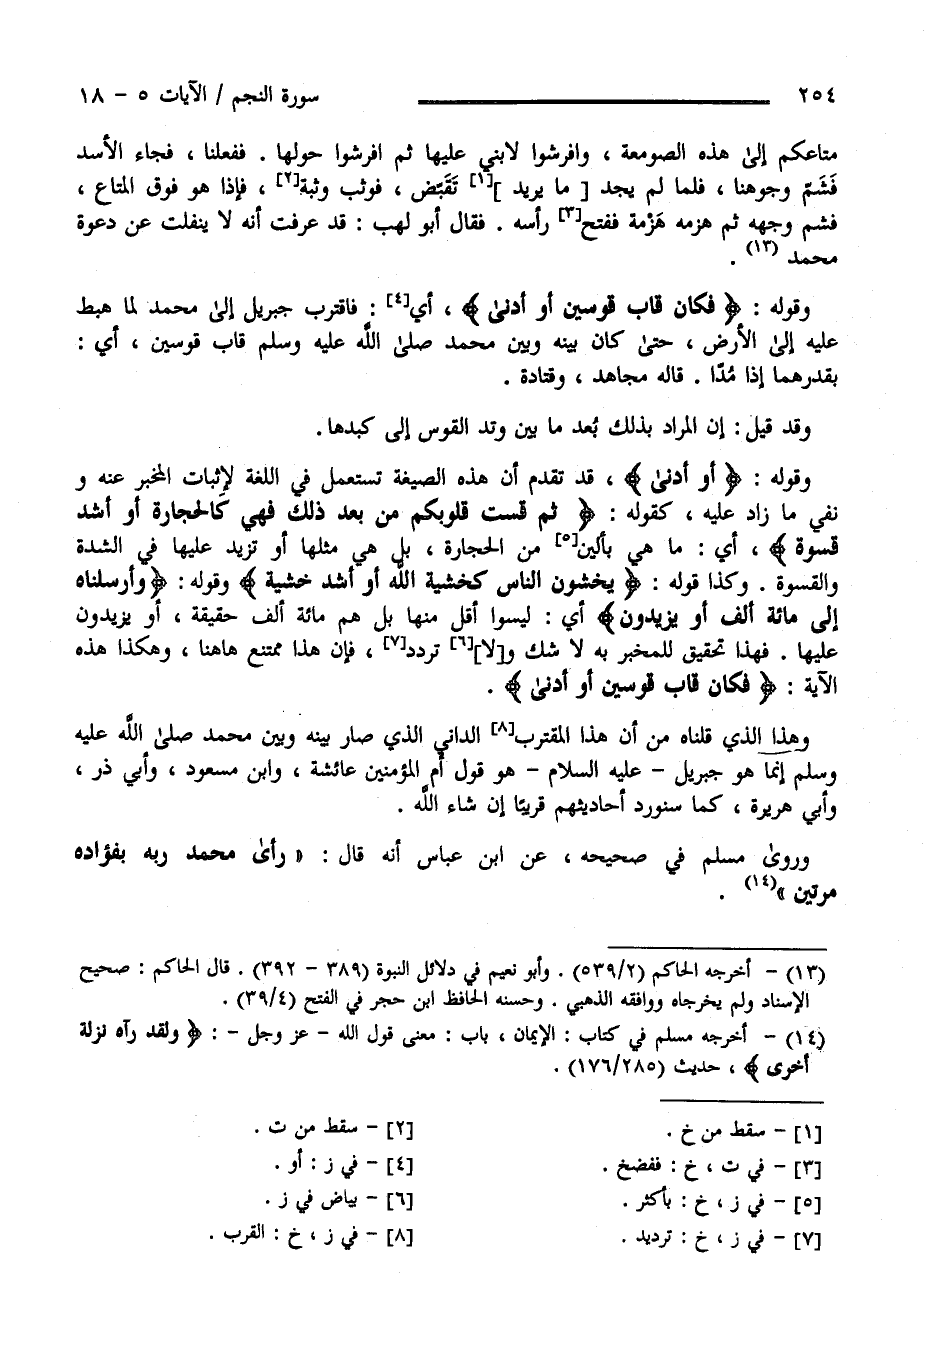 ٢٥٤ سورة النجم / الآيات ٥ - ١٨
متاعكم إلىٰ هذه الصومعة ، وافرشوا لابني عليها ثم افرشوا حولها . ففعلنا ، فجاء الأسد
فَشَمّ وجوهنا ، فلما لم يجد [ ما يريد ][١] تَقَبّض ، فوثب وثبة[٢] ، فإذا هو فوق المتاع ،
فشم وجهه ثم هزمه هَزْمة ففتح[٣] رأسه . فقال أبو لهب : قد عرفت أنه لا ينفلت عن دعوة
محمد (١٣) .
وقوله : ﴿ فكان قاب قوسين أو أدنىٰ ﴾ ، أي[٤] : فاقترب جبريل إلىٰ محمد لما هبط
عليه إلىٰ الأرض ، حتىٰ كان بينه وبين محمد صلىٰ اللَّه عليه وسلم قاب قوسين ، أي :
بقدرهما إذا مُدّا . قاله مجاهد ، وقتادة .
وقد قيل : إن المراد بذلك بُعد ما بين وتد القوس إلى كبدها .
وقوله : ﴿ أو أدنىٰ ﴾ ، قد تقدم أن هذه الصيغة تستعمل في اللغة لإثبات المخبر عنه و
نفي ما زاد عليه ، كقوله : ﴿ ثم قست قلوبكم من بعد ذلك فهي كَالحجارة أو أشد
قسوة ﴾ ، أي : ما هي بألين[٥] من الحجارة ، بل هي مثلها أو تزيد عليها في الشدة
والقسوة . وكذا قوله : ﴿ يخشون الناس كخشية اللَّه أو أشد خشية ﴾ وقوله : ﴿ وأرسلناه
إلى مائة ألف أو يزيدون ﴾ أي : ليسوا أقل منها بل هم مائة ألف حقيقة ، أو يزيدون
عليها . فهذا تحقيق للمخبر به لا شك و[لا][٦] تردد[٧] ، فإن هذا ممتنع هاهنا ، وهكذا هذه
الآية : ﴿ فكان قاب قوسين أو أدنىٰ ﴾ .
وهذا الذي قلناه من أن هذا المقترب[٨] الداني الذي صار بينه وبين محمد صلىٰ اللَّه عليه
وسلم إنما هو جبريل - عليه السلام - هو قول أم المؤمنين عائشة ، وابن مسعود ، وأبي ذر ،
وأبي هريرة ، كما سنورد أحاديثهم قريبًا إن شاء اللَّه .
وروىٰ مسلم في صحيحه ، عن ابن عباس أنه قال : « رأىٰ محمد ربه بفؤاده
مرتين »(١٤) .
(١٣) - أخرجه الحاكم (٥٣٩/٢) . وأبو نعيم في دلائل النبوة (٣٨٩ - ٣٩٢) . قال الحاكم : صحيح
الإسناد ولم يخرجاه ووافقه الذهبي . وحسنه الحافظ ابن حجر في الفتح (٣٩/٤) .
(١٤) - أخرجه مسلم في كتاب : الإيمان ، باب : معنى قول الله - عز وجل - : ﴿ ولقد رآه نزلة
أخرى ﴾ ، حديث (١٧٦/٢٨٥) .
[١] - سقط من خ . [٢] - سقط من ت .
[٣] - في ت ، خ : ففضخ . [٤] - في ز : أو .
[٥] - في ز ، خ : بأكثر . [٦] - بياض في ز .
[٧] - في ز ، خ : ترديد . [٨] - في ز ، خ : القرب .